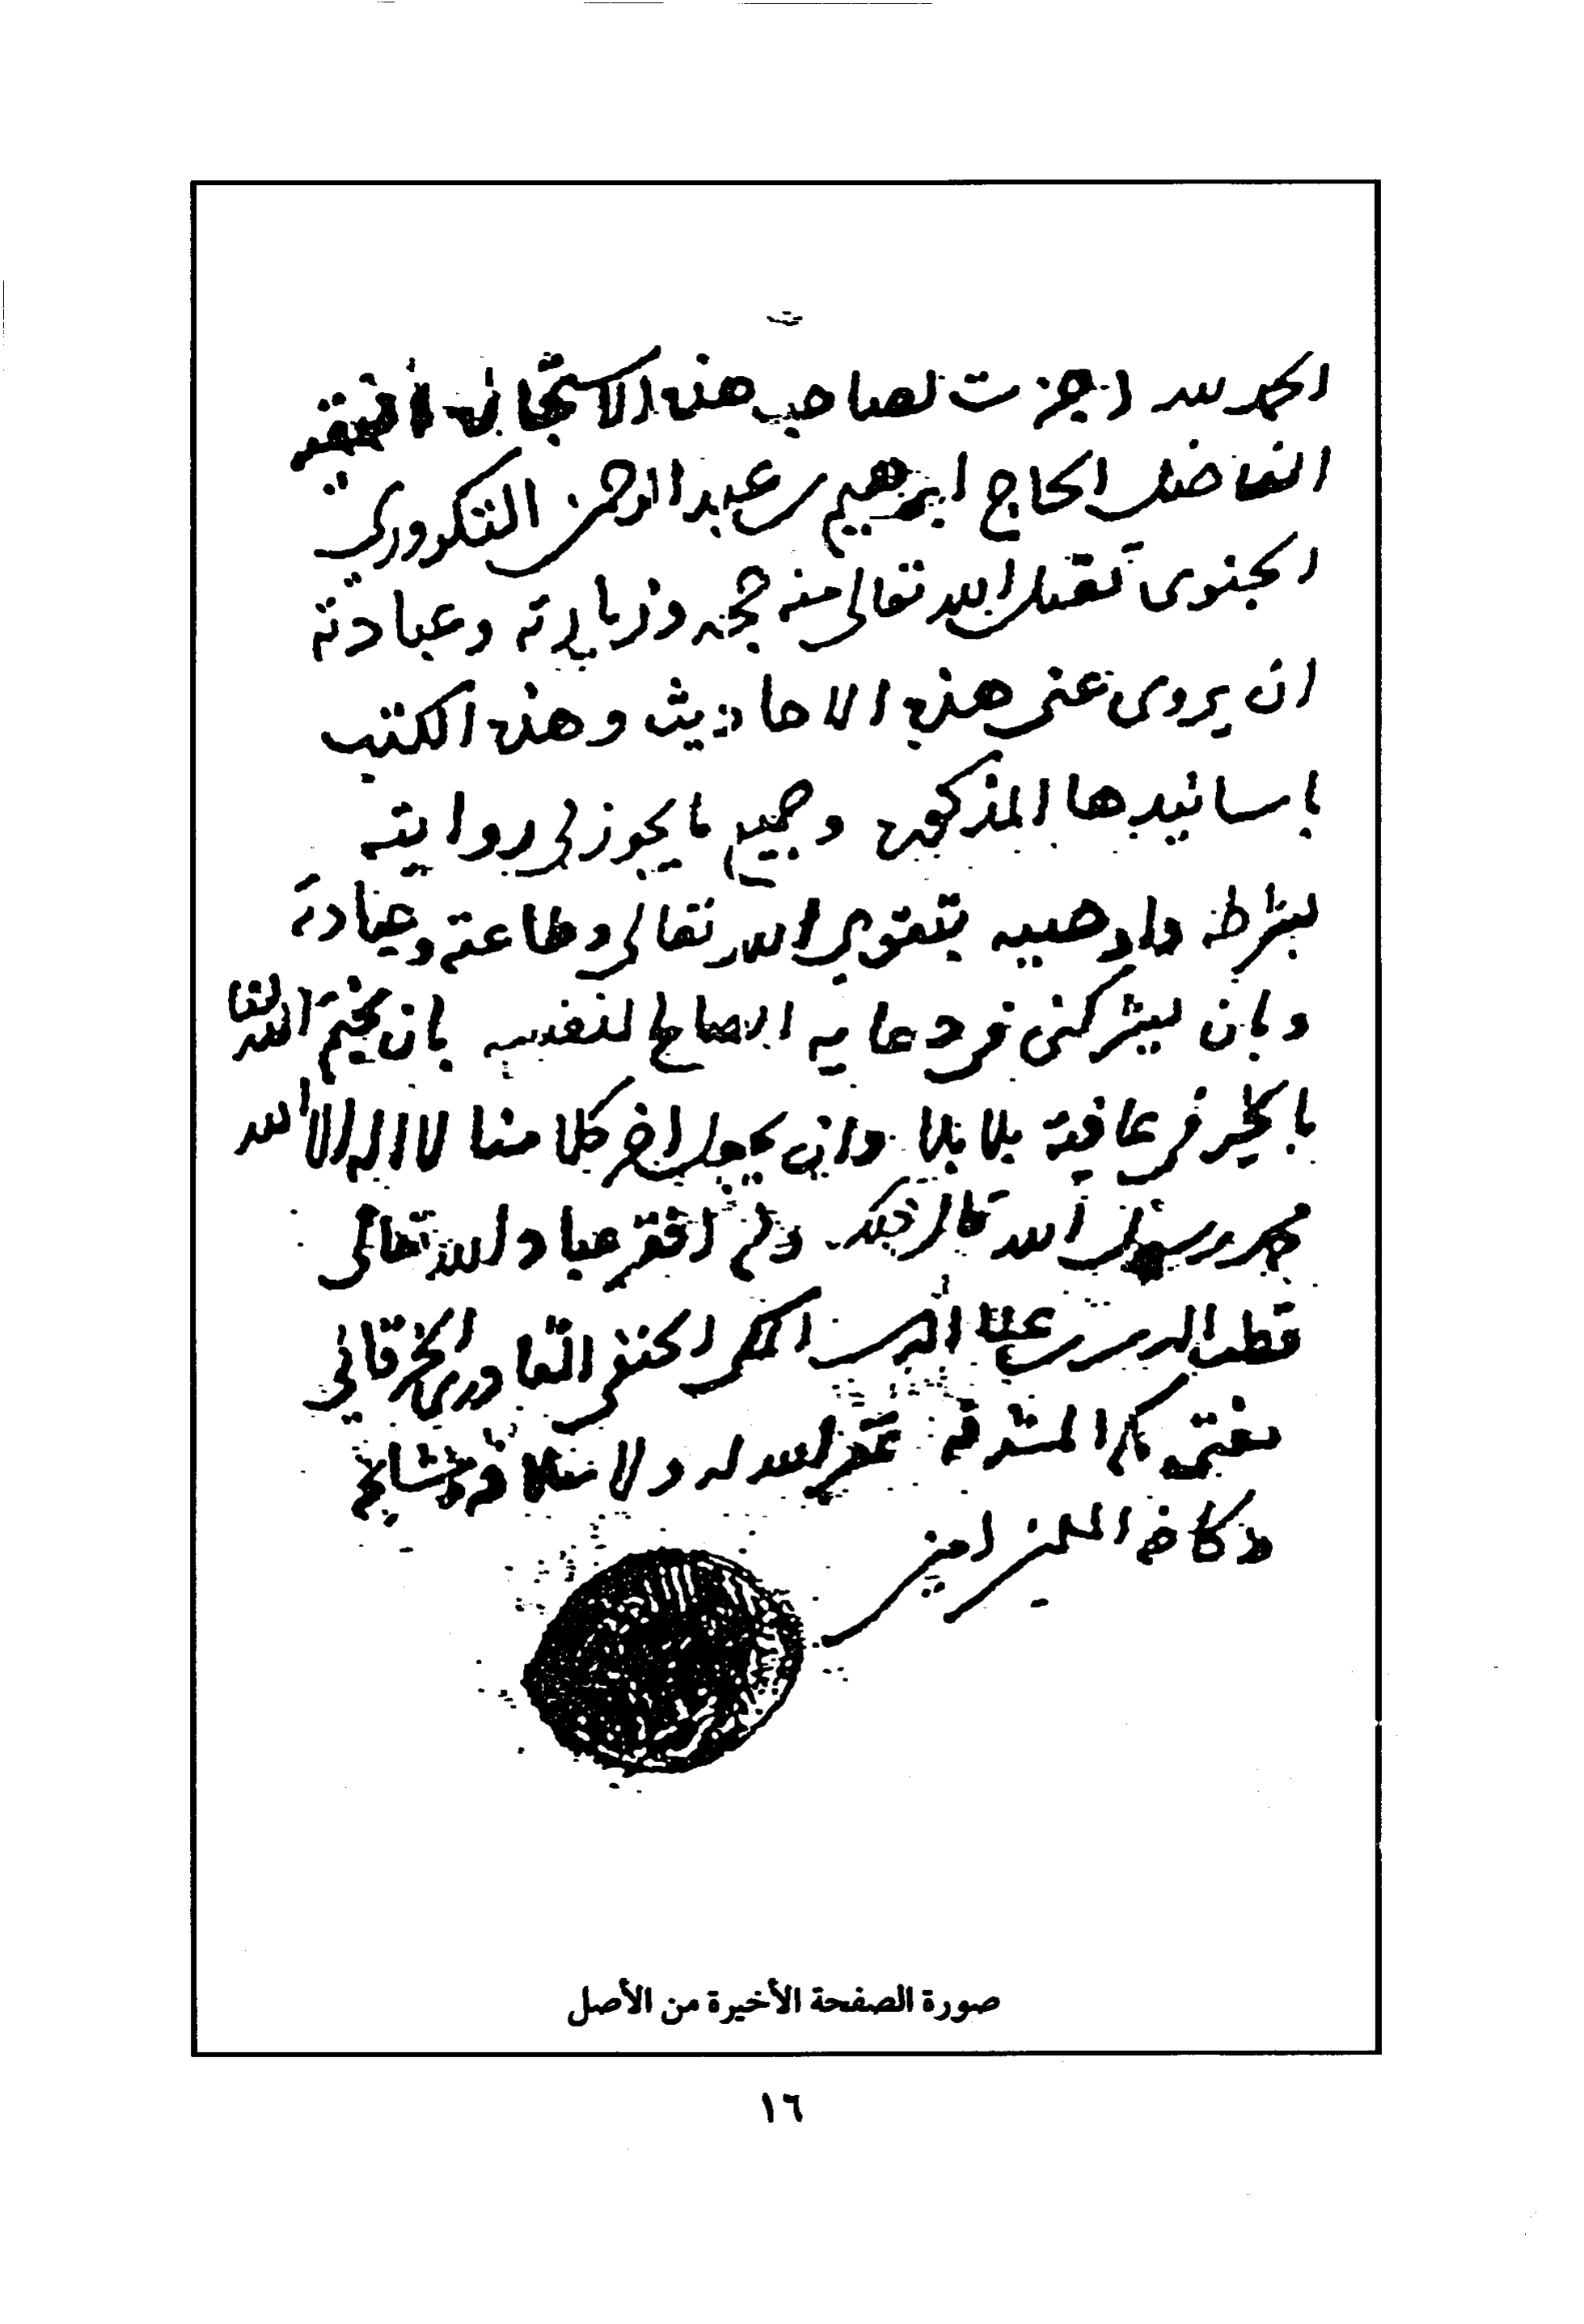 الحمد لله اجزت لصاحب هذه الاستجازة الفقيه
الفاضل الحاج ابرهيم بن عبد الرحمن التكروري
الجنوى تقبل الله تعالى منه حجه وزيارته وعبادته
ان يروى عنى هذه الاحاديث وهذه الكتب
باسانيدها المذكورة وجميع ما يجوز لى روايته
بشرطه واوصيه بتقوى الله تعالى وطاعته وعبادته
وبان يشركنى فى دعايه الصالح لنفسه بان يختم الله لنا
بالخير فى عافية بلا بلا وان يجعل اخر كلامنا لا اله الا الله
محمد رسول الله قال ذلك ورقم افقر عباد الله تعالى
قطب الدين بن علا الدين المكى الحنفى القادرى الخرقانى
مفتى مكة المشرفة غفر الله له ولاسلافه ومشايخه
وكافة المسلمين امين
صورة الصفحة الأخيرة من الأصل
١٦